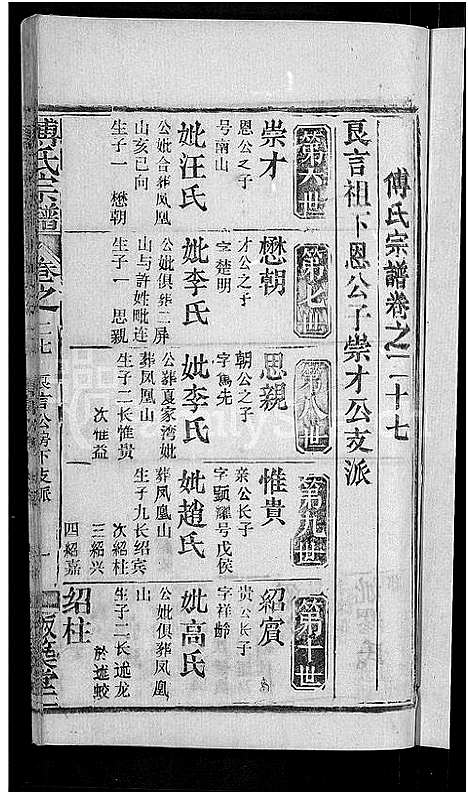 傅氏宗譜卷之二十七
良言祖下恩公子崇才公支派
第六世
崇才
恩公之子
号南山
妣汪氏
公妣合葬凤凰
山亥巳向
生子一 懋朝
第七世
懋朝
才公之子
字楚明
妣李氏
公妣俱葬二屏
山与許姓毗连
生子一 思親
第八世
思親
朝公之子
字篤先
妣李氏
公葬夏家湾妣
葬凤凰山
生子二长惟贵
次惟益
第九世
惟貴
亲公长子
字顕耀号戊侯
妣趙氏
葬凤凰山
生子九长绍宾
次绍柱
三紹兴
四紹嘉
第十世
紹賓
贵公长子
字祥齡
妣高氏
公妣俱葬凤凰
山
生子二长述龙
於述蛟
绍柱
傅氏宗譜
卷之二七
良言公房下支派
一